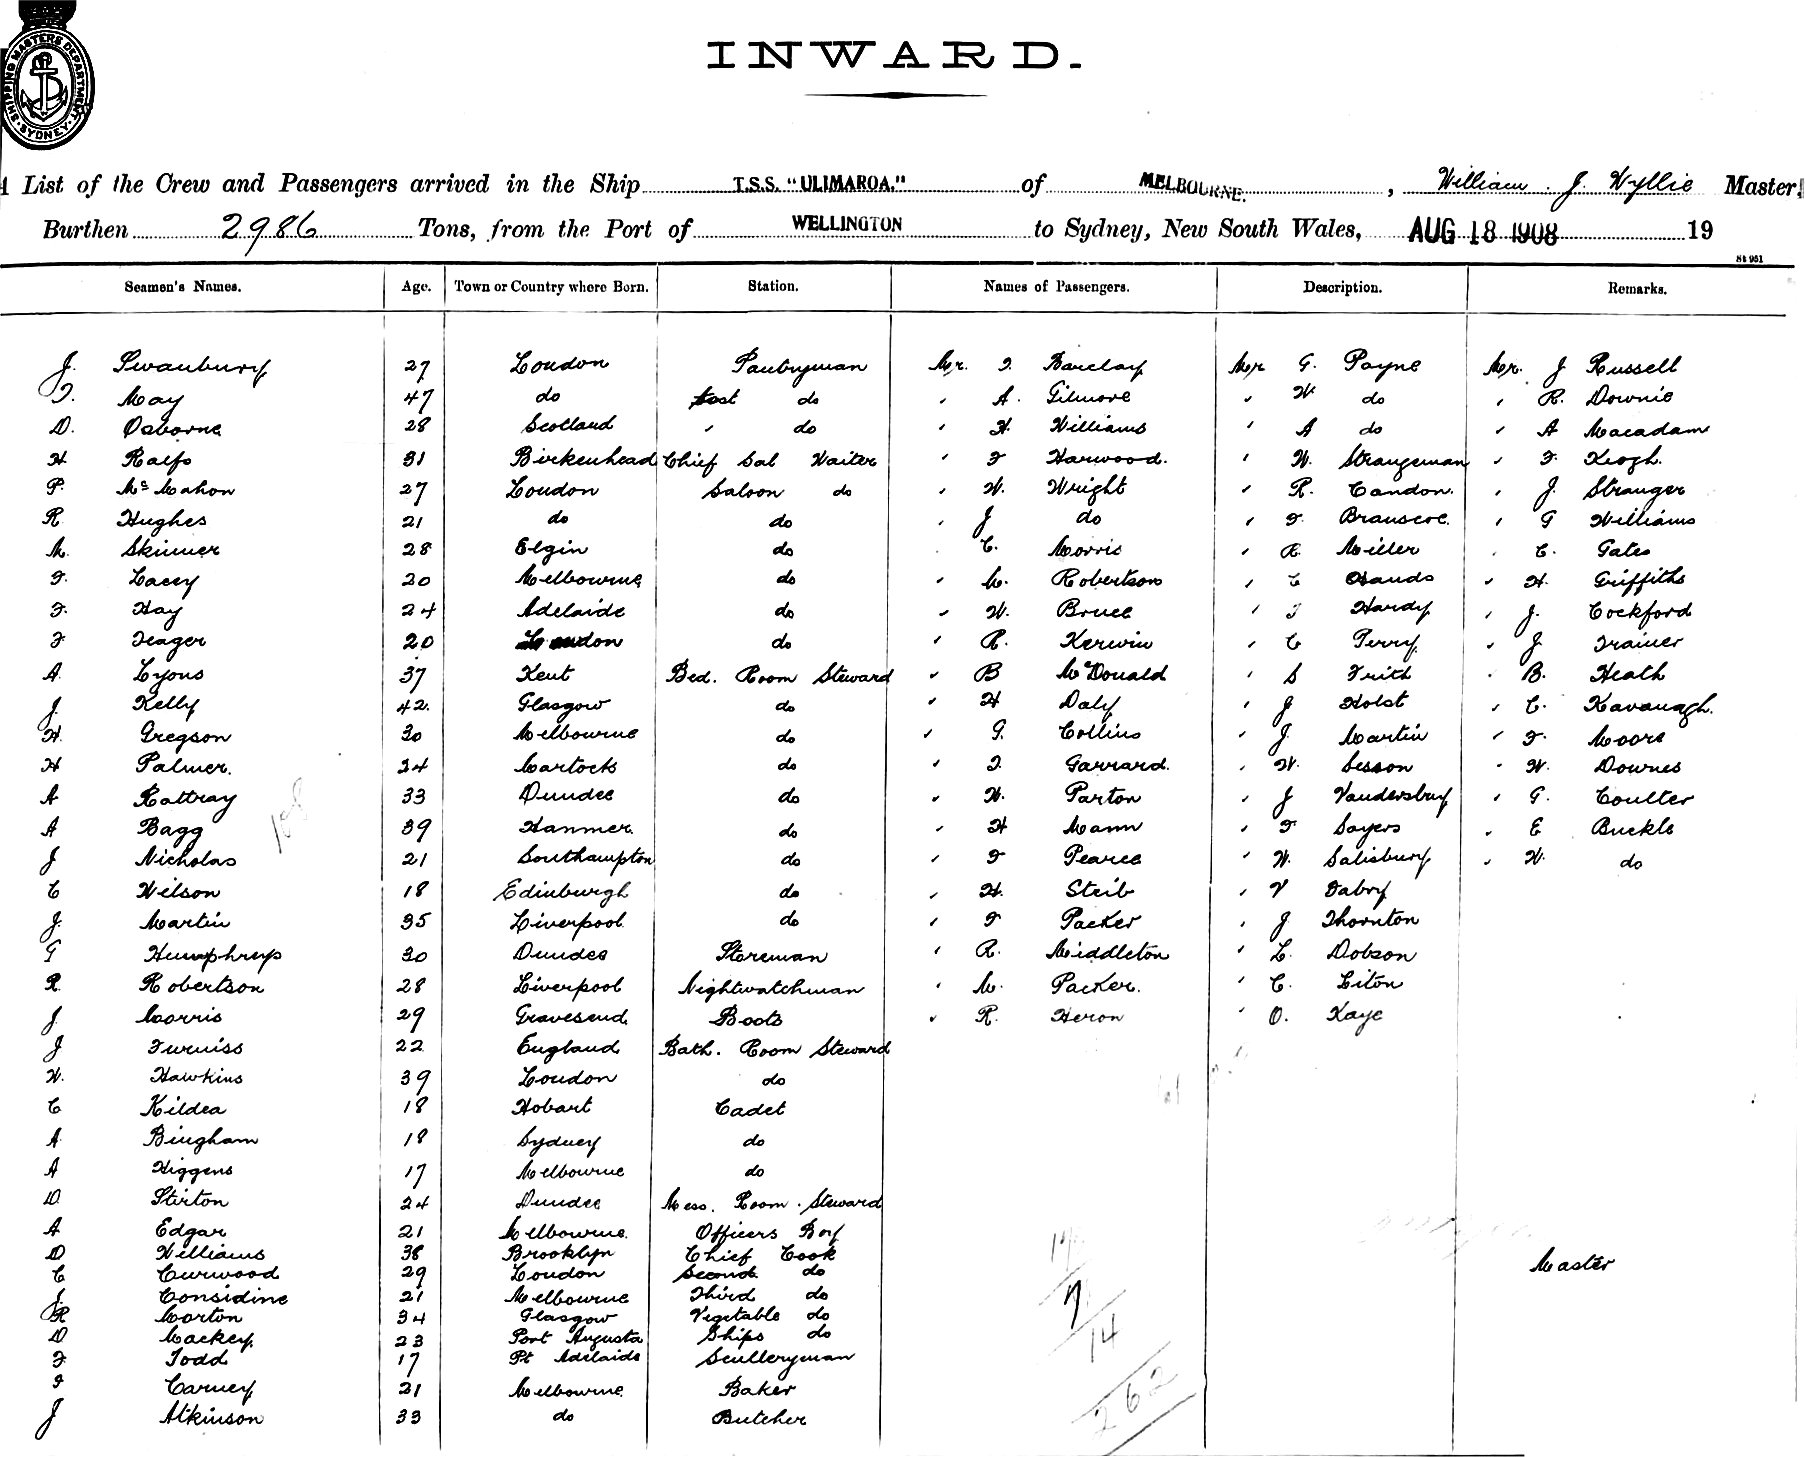 SHIPPING MASTERS DEPARTMENT · SYDNEY ·
INWARD.
List of the Crew and Passengers arrived in the Ship T.S.S. "ULIMAROA." of MELBOURNE. , William . J. Wyllie Master,
Burthen 2986 Tons, from the Port of WELLINGTON to Sydney, New South Wales, AUG 18 1908 19
Seamen's Names. Age. Town or Country where Born. Station. Names of Passengers. Description. Remarks.
J. Swanbury 27 London Pantryman Mr. Barclay Mr G. Payne Mr. J Russell
May 47 do do A. Gilmore W do R. Downie
D. Osborne 28 Scotland " do H. Williams A do A Macadam
H Ralfs 31 Birkenhead Chief Sal Waiter F Harwood. W. Strangeman F. Keogh.
P. McMahon 27 London Saloon do W. Wright R. Candon. J. Stranger
R Hughes 21 do do J do F. Branscoe. G Williams
M. Skinner 28 Elgin do C. Morris R. Miller C. Gates
F. Lacey 20 Melbourne do M. Robertson C Hands H. Griffiths
F. Hay 24 Adelaide do W. Bruce Hardy J. Cockford
F Yeager 20 London do R. Kerwin C Perry J Trainer
A. Lyons 37 Kent Bed. Room Steward B McDonald S Frith B. Heath
J. Kelly 42. Glasgow do H Daly J Holst C. Kavanagh.
H. Gregson 30 Melbourne do G. Collins J. Martin F. Moore
H Palmer. 34 Martock do Garrard. W. Sesson W. Downes
A Rattray 33 Dundee do W. Parton J Vandersluy G. Coulter
A Bagg 39 Hanmer. do H Mann F Sayers E Buckle
J Nicholas 21 Southampton do F Pearce W. Salisbury W. do
C Wilson 18 Edinburgh do H. Streib V Dabry
J. Martin 35 Liverpool do F Packer J Thornton
G Humphreys 30 Dundee Storeman R. Middleton L. Dobson
R. Robertson 28 Liverpool Nightwatchman M. Packer. C. Liton
J. Morris 29 Gravesend. Boots R. Heron O. Kaye
J Furniss 22 England Bath. Room Steward
W. Hawkins 39 London do
C Kildea 18 Hobart Cadet
A. Bingham 18 Sydney do
A Higgens 17 Melbourne do
D. Stirton 24 Dundee Mess. Room. Steward
A Edgar 21 Melbourne. Officers Boy
D Williams 38 Brooklyn Chief Cook
C Curwood 29 London Second. do
J. Considine 21 Melbourne Third do
R Morton 34 Glasgow Vegetable do
D Mackey. 23 Port Augusta Ships do
F Todd 17 Pt Adelaide Sculleryman
F Carney 21 Melbourne. Baker
J Atkinson 33 do Butcher
Master
7
14
262